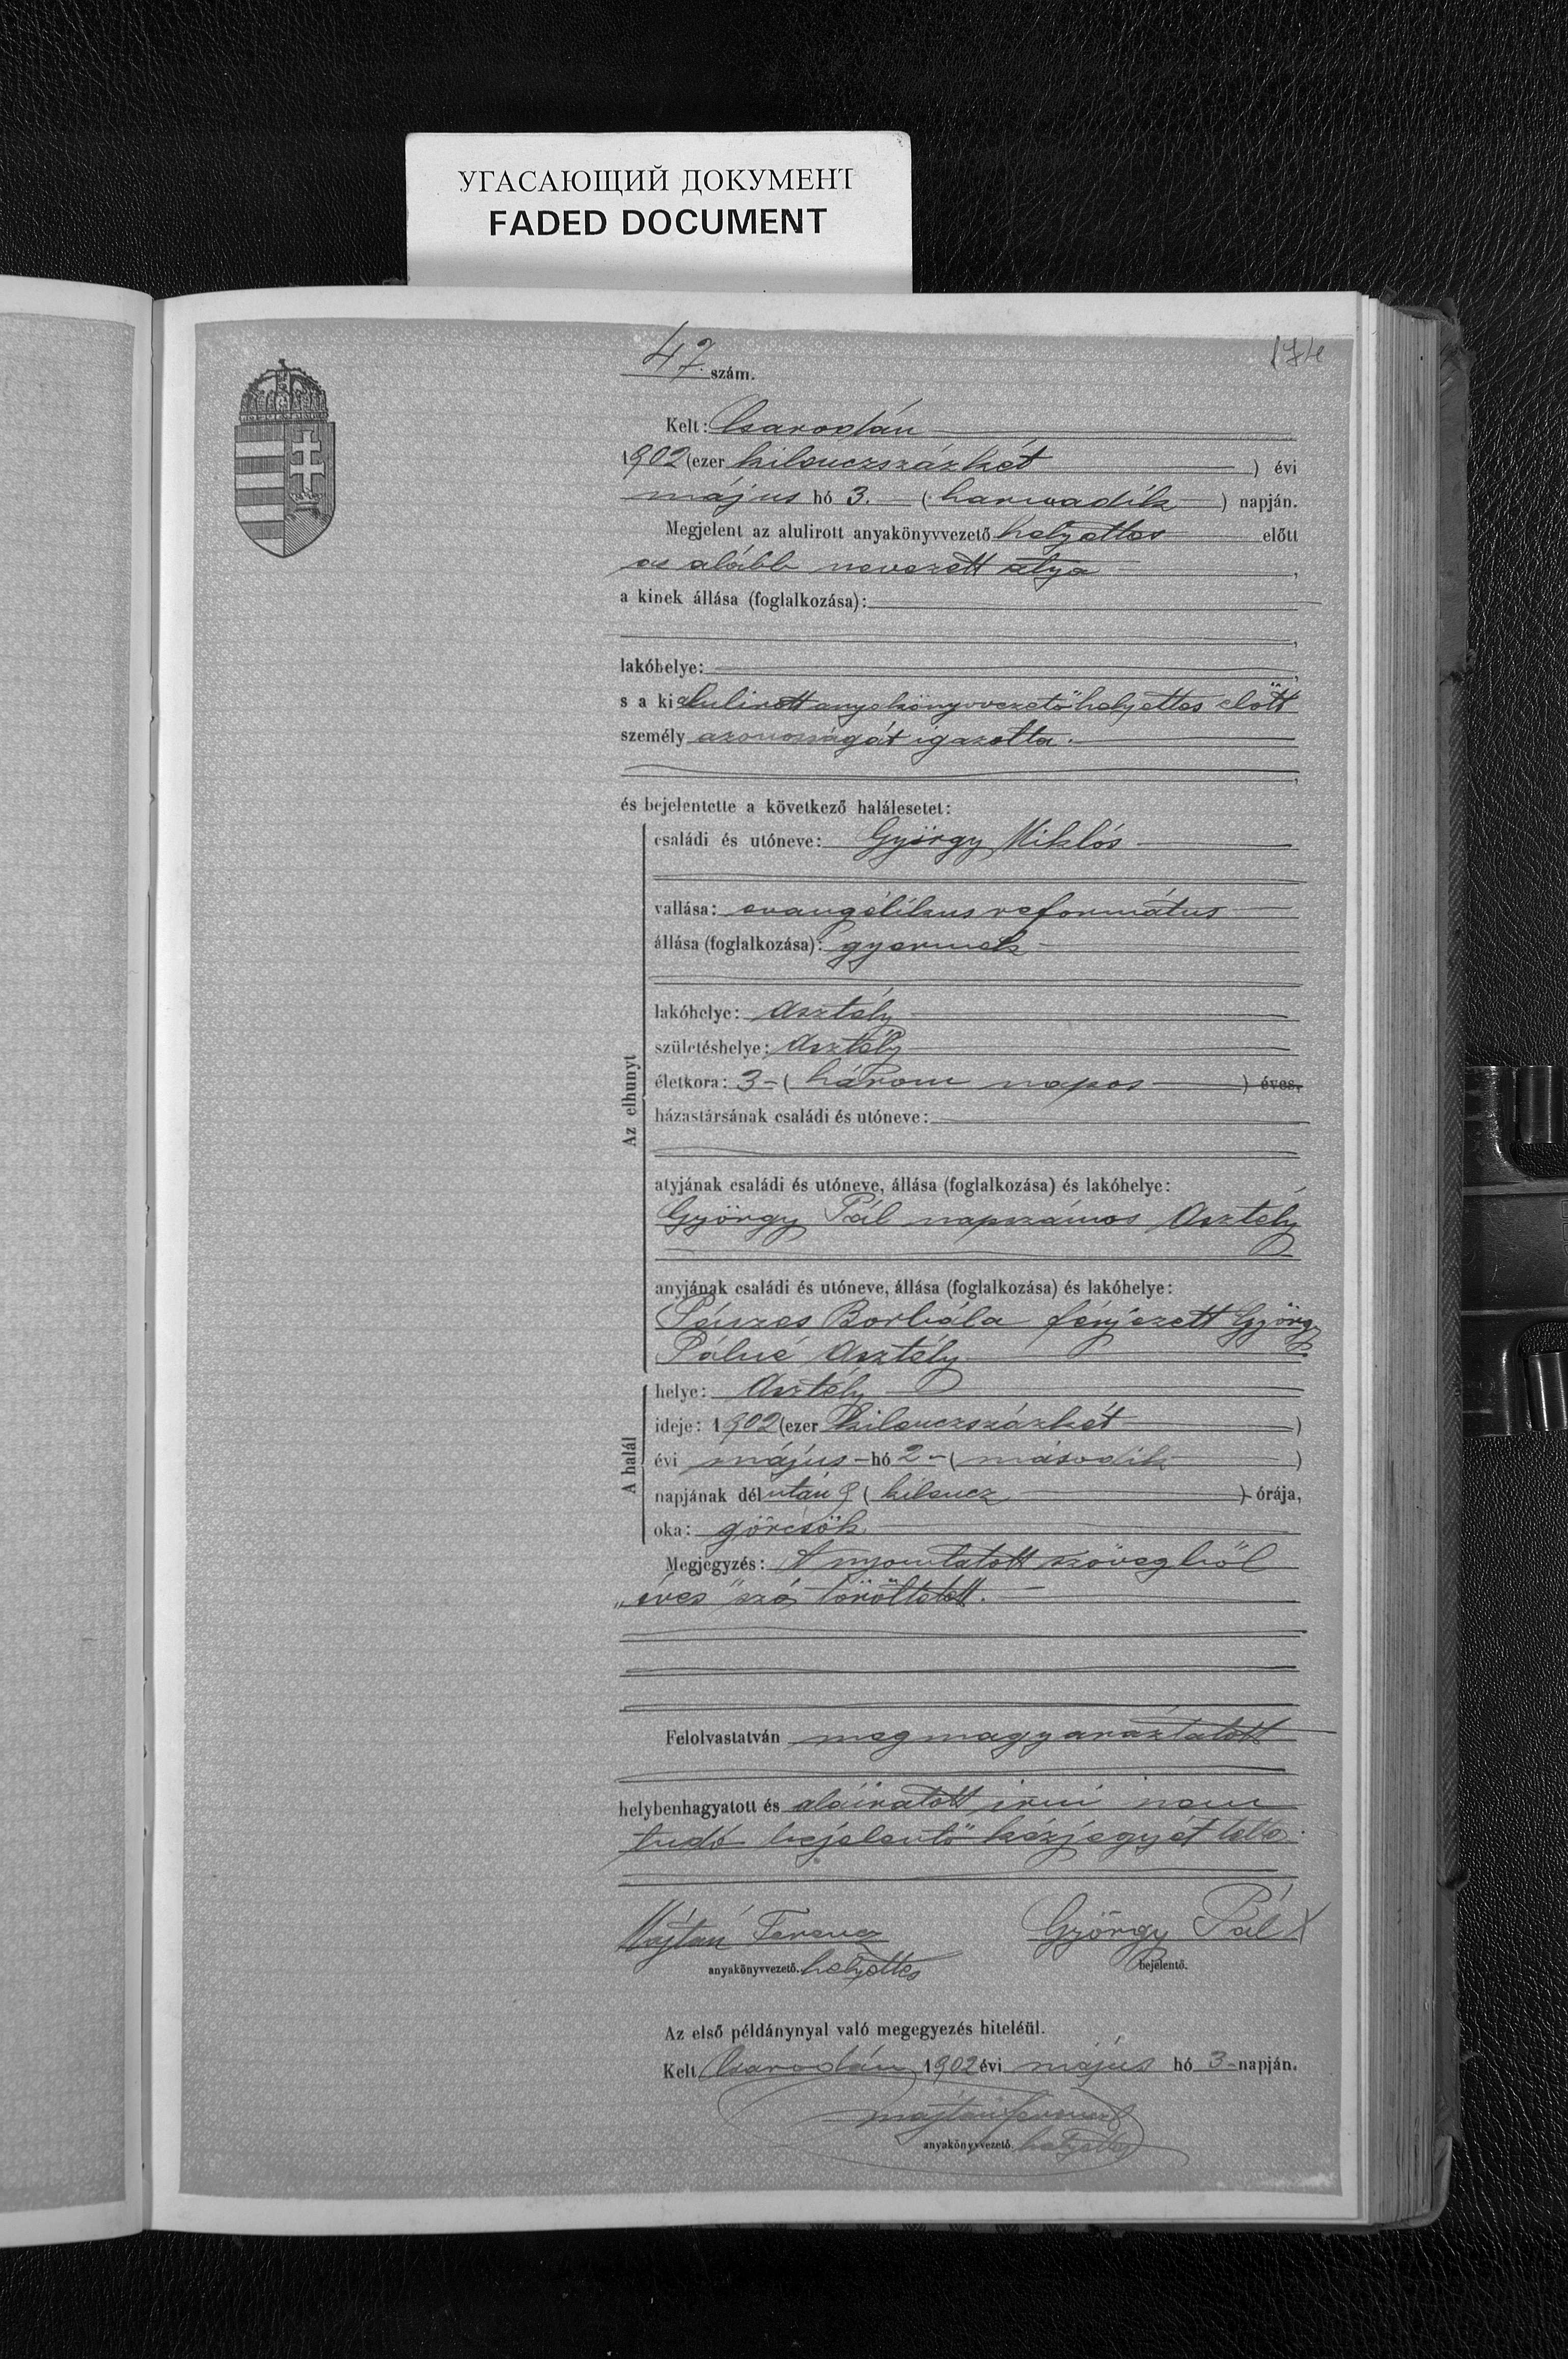 УГАСАЮЩИЙ ДОКУМЕНТ
FADED DOCUMENT
47. szám.
174
Kelt: Csarodán
1902 (ezer kilenczszázkét ) évi
május hó 3. ( harmadik ) napján.
Megjelent az alulirott anyakönyvvezető helyettes előtt
az alább nevezett atya ,
a kinek állása (foglalkozása):
,
lakóhelye: ,
s a ki alulirott anyakönyvvezető helyettes előtt
személy azonosságát igazolta.
,
és bejelentette a következő halálesetet:
Az elhunyt
családi és utóneve: György Miklós
vallása: evangélikus református
állása (foglalkozása): gyermek
lakóhelye: Asztély
születéshelye: Asztély
életkora: 3 - ( három napos ) éves,
házastársának családi és utóneve:
atyjának családi és utóneve, állása (foglalkozása) és lakóhelye:
György Pál napszámos Asztély
anyjának családi és utóneve, állása (foglalkozása) és lakóhelye:
Borbála férjezett György
Pálné Asztély
A halál
helye: Asztély
ideje: 1902 (ezer kilenczszázkét )
évi május - hó 2 - ( második )
napjának délután 9 ( kilencz ) órája,
oka: görcsök
Megjegyzés: A nyomtatott szövegből
„éves" szó töröltetett.
Felolvastatván megmagyaráztatott
helybenhagyatott és aláiratott irni nem
tudó bejelentő kézjegyét tette.
Majtán Ferencz György Pál X
anyakönyvvezető. helyettes bejelentő.
Az első példánynyal való megegyezés hiteléül.
Kelt Csarodán 1902 évi május hó 3 - napján.
Majtán Ferencz
anyakönyvvezető helyettes